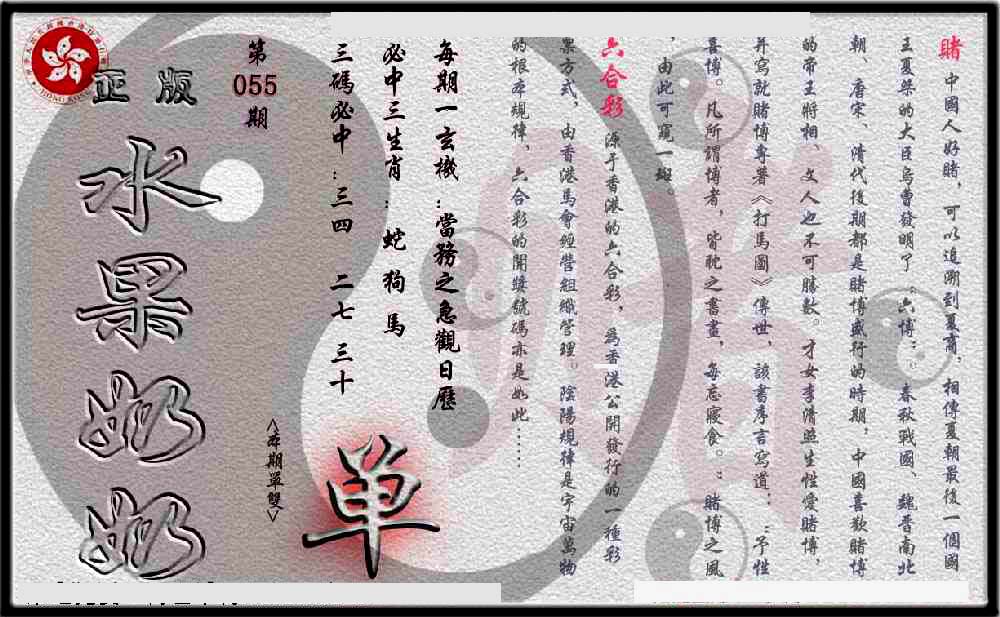 賭 中國人好賭，可以追溯到夏商，相傳夏朝最後一個國
王夏桀的大臣烏曹發明了“六博”，春秋戰國、魏晉南北
朝、唐宋、清代後期都是賭博盛行的時期，中國喜歡賭博
的帝王將相、文人也不可勝數。才女李清照生性愛賭博，
并寫就賭博專著《打馬圖》傳世，該書序言寫道：“予性
喜博。凡所謂博者，皆耽之晝，每忘寢食。”賭博之風
，由此可窺一斑。
六合彩 源于香港的六合彩，為香港公開發行的一種彩
票方式，由香港馬會經營組織管理。陰陽規律是宇宙萬物
的根本規律，六合彩的開獎號碼亦是如此……
每期一玄機：當務之急觀日曆
必中三生肖：蛇 狗 馬
三碼必中：三四 二七 三十
第
055
期
<本期單雙>
单
正版
水果奶奶